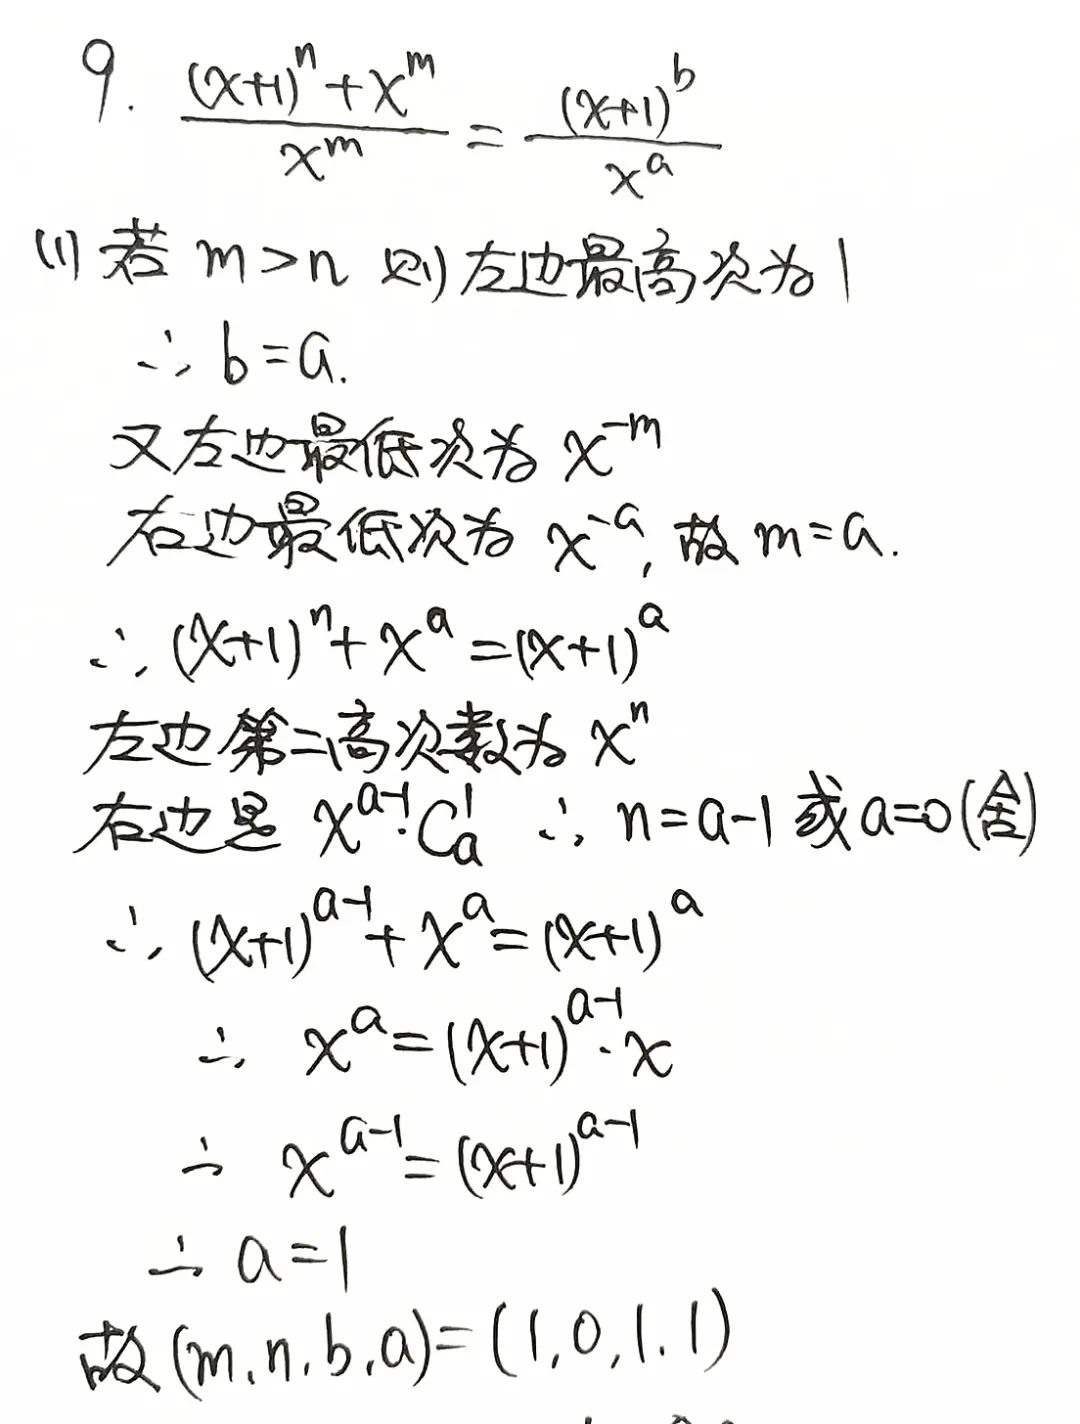 9. ((x+1)^n + x^m)/x^m = (x+1)^b/x^a
(1) 若 m>n 则左边最高次为1
∴ b=a.
又左边最低次为 x^{-m}
右边最低次为 x^{-a}, 故 m=a.
∴ (x+1)^n + x^a = (x+1)^a
左边第二高次数为 x^n
右边是 x^{a-1}·C_a^1 ∴ n=a-1 或 a=0(舍)
∴ (x+1)^{a-1} + x^a = (x+1)^a
∴ x^a = (x+1)^{a-1}·x
∴ x^{a-1} = (x+1)^{a-1}
∴ a=1
故 (m,n,b,a)=(1,0,1,1)